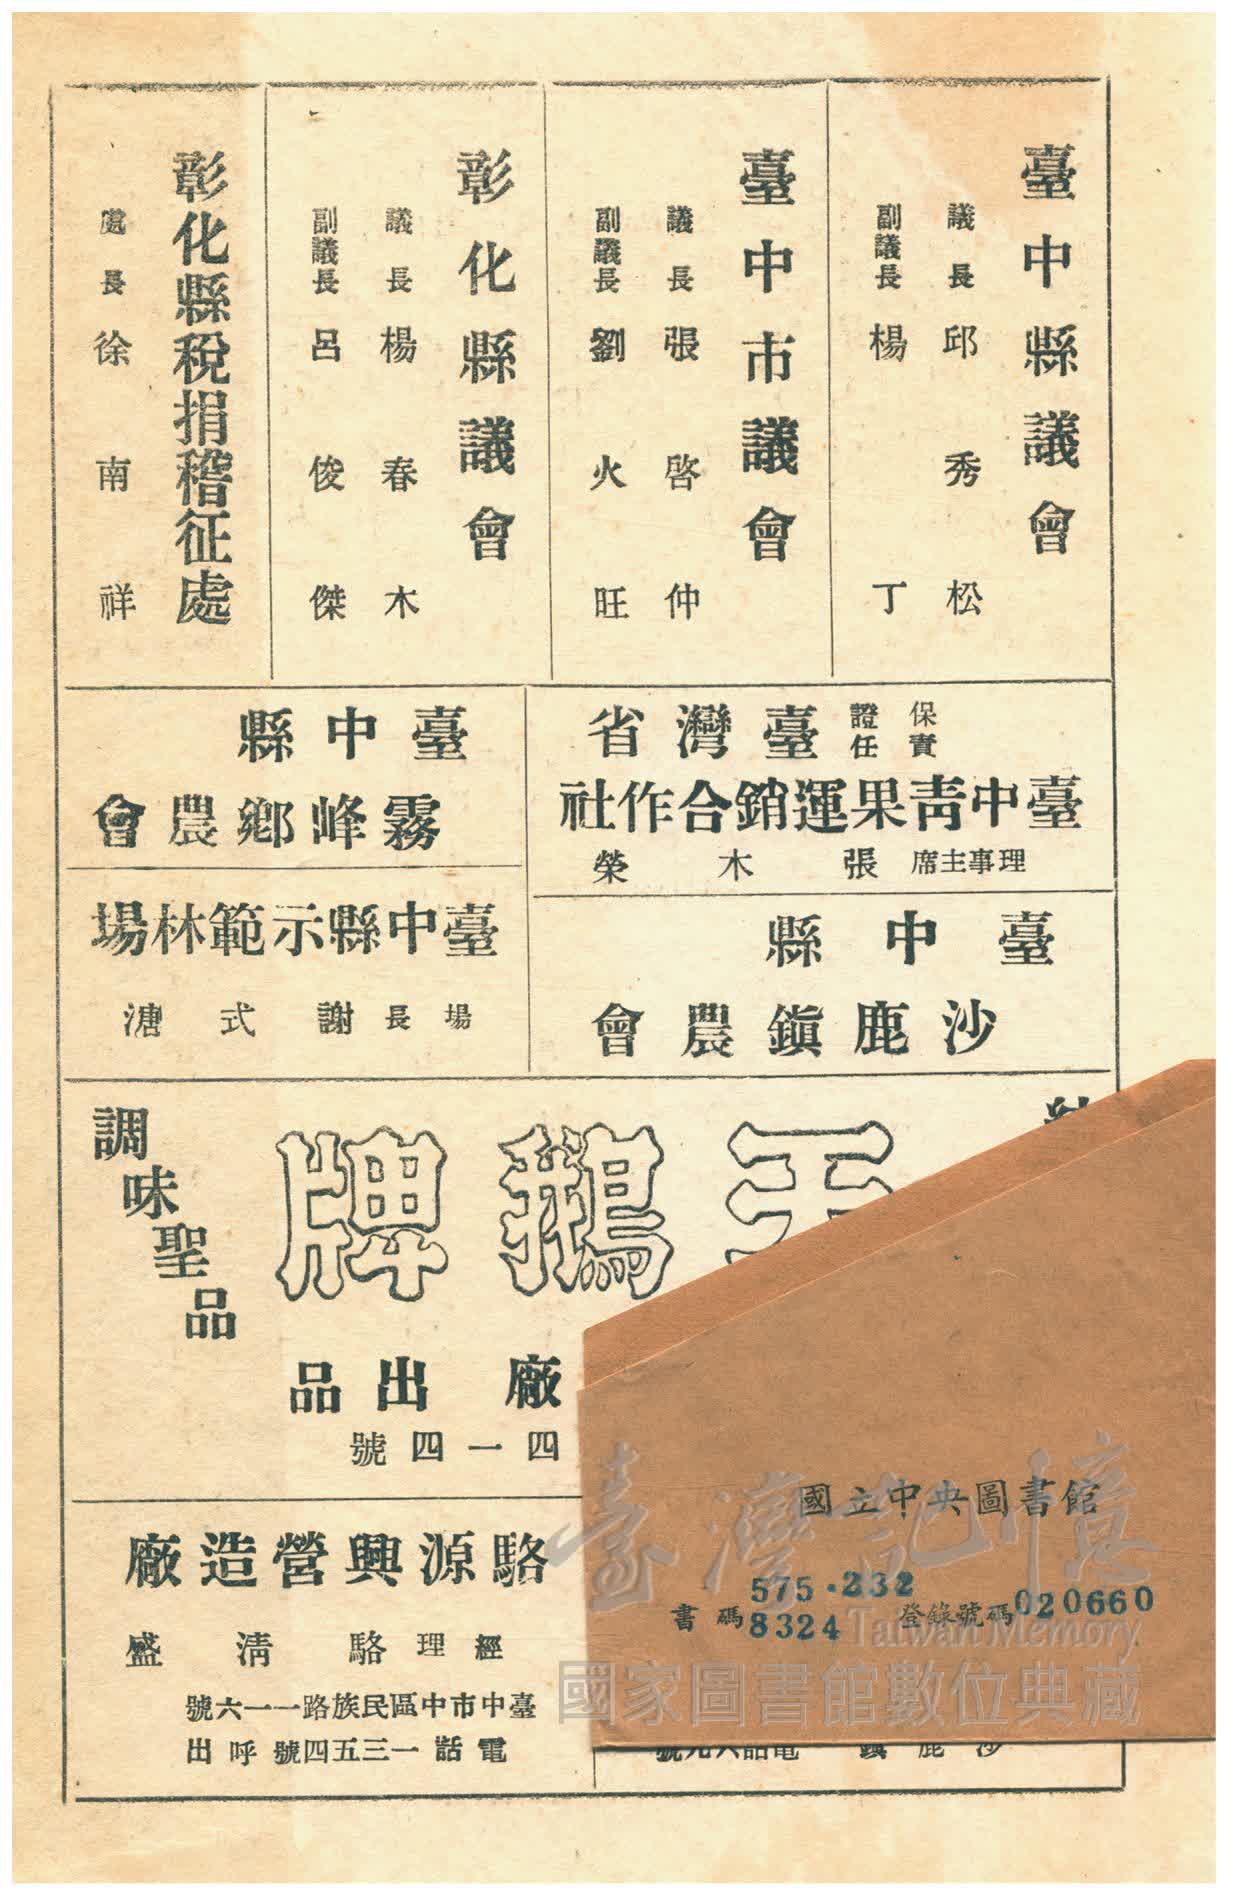 臺中縣議會
議長邱秀松
副議長楊丁
臺中市議會
議長張啓仲
副議長劉火旺
彰化縣議會
議長楊春木
副議長呂俊傑
彰化縣稅捐稽征處
處長徐南祥
保證
責任
臺灣省
臺中靑果運銷合作社
理事主席張木榮
臺中縣
沙鹿鎭農會
臺中縣
霧峰鄉農會
臺中縣示範林場
場長謝式溏
鵝牌
調味聖品
廠出品
四一四號
駱源興營造廠
經理駱淸盛
臺中市中區民族路一一六號
電話一三五四號呼出
沙鹿鎭 電話六九號
國立中央圖書館
書碼 575.232
8324
登錄號碼 020660
臺灣記憶
Taiwan Memory
國家圖書館數位典藏